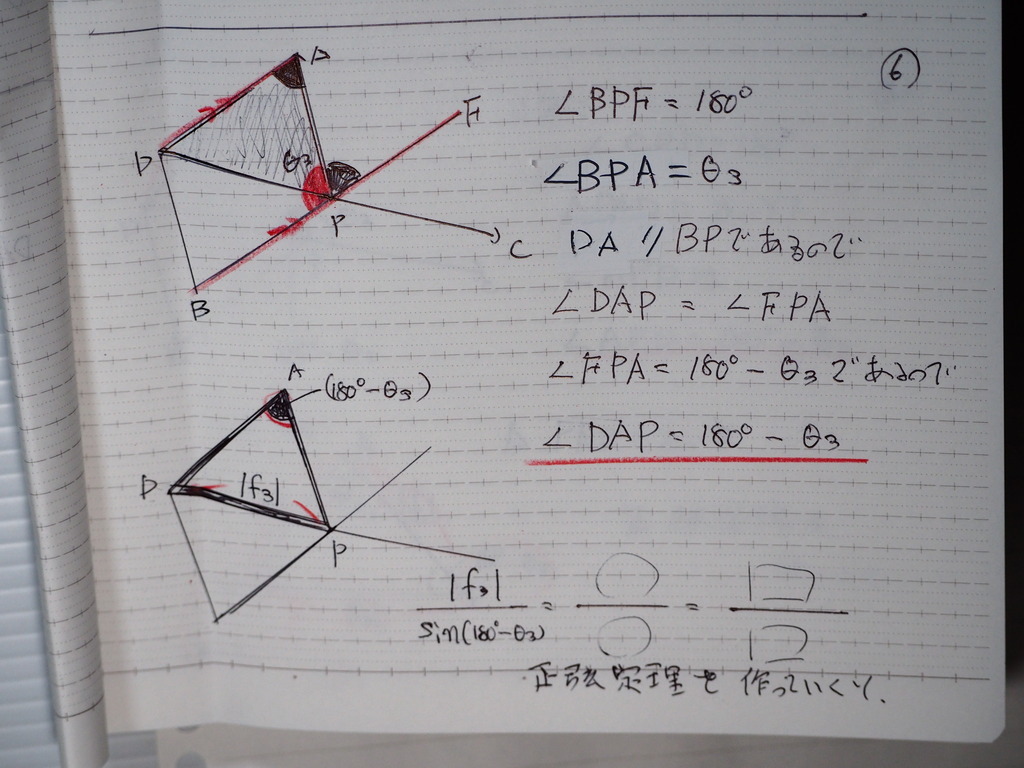 (6)
A
D
θ3
F
P
C
B
∠BPF = 180°
∠BPA = θ3
DA // BPであるので
∠DAP = ∠FPA
∠FPA = 180° - θ3であるので
∠DAP = 180° - θ3
A
(180° - θ3)
D
|f3|
P
|f3| / sin(180° - θ3) = ○ / ○ = □ / □
正弦定理を作っていく!